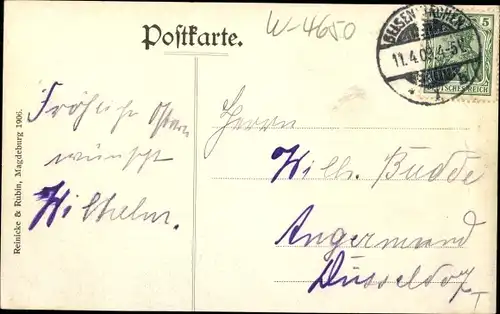 W-4650
Postkarte.
11.4.09. 4-5N.
5
DEUTSCHES REICH
Fröhliche Ostern
wünscht
Wilhelm.
Herrn
Wilh. Budde
Angermund
Düsseldorf
Reinicke & Rubin, Magdeburg 1906.